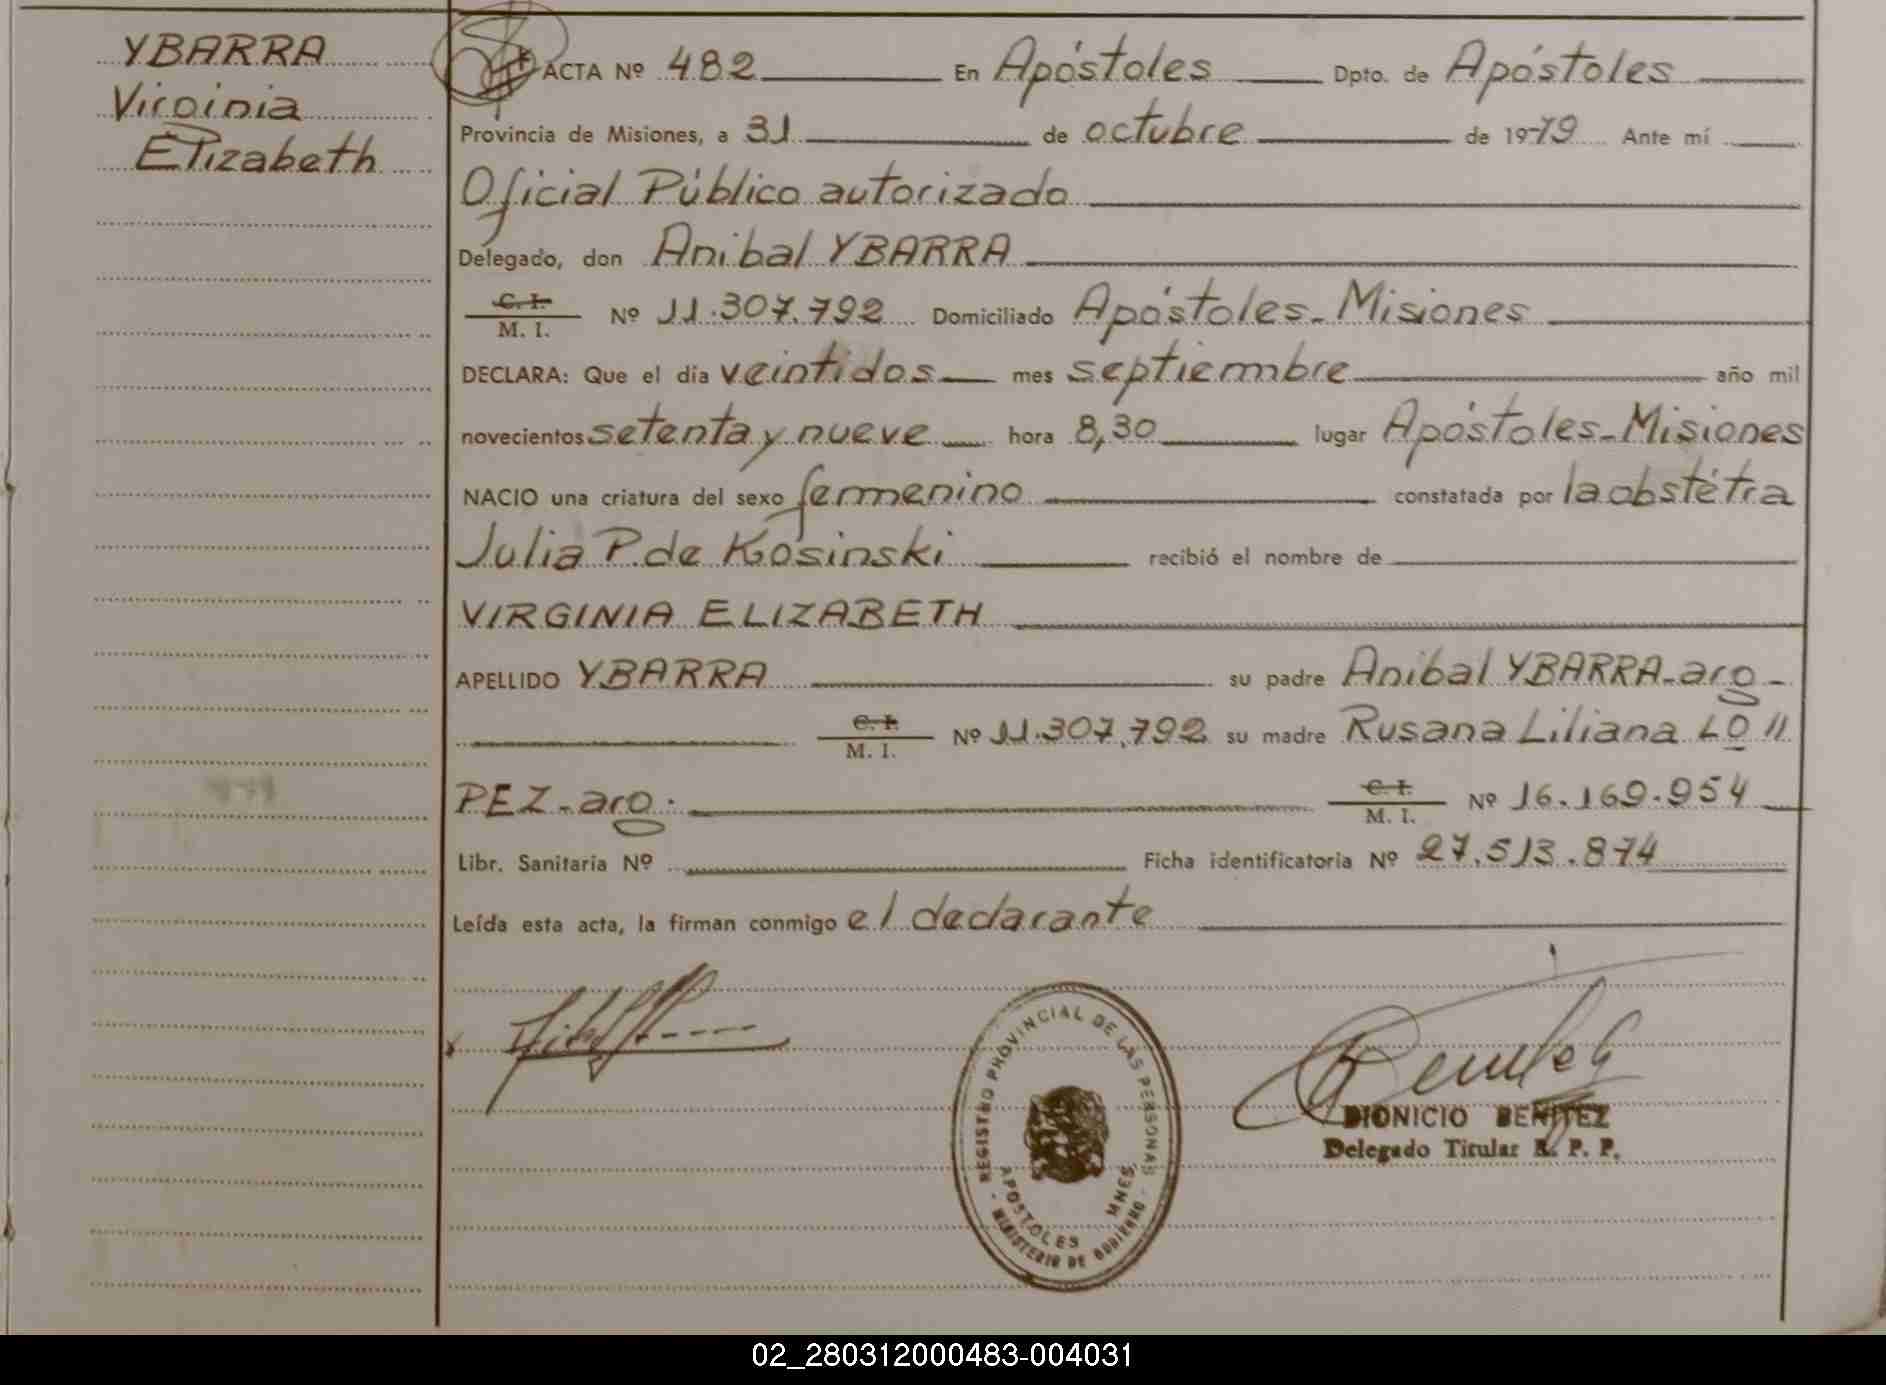 YBARRA
Virginia
Elizabeth
ACTA Nº 482 En Apóstoles Dpto. de Apóstoles
Provincia de Misiones, a 31 de octubre de 1979 Ante mí
Oficial Público autorizado
Delegado, don Anibal YBARRA
C. I.
M. I. Nº 11.307.792 Domiciliado Apóstoles-Misiones
DECLARA: Que el día veintidos mes septiembre año mil
novecientos setenta y nueve hora 8,30 lugar Apóstoles-Misiones
NACIO una criatura del sexo femenino constatada por la obstétra
Julia P. de Kosinski recibió el nombre de
VIRGINIA ELIZABETH
APELLIDO YBARRA su padre Anibal YBARRA-aro-
C. I.
M. I. Nº 11.307.792 su madre Rusana Liliana LO"
PEZ-aro. C. I.
M. I. Nº 16.169.954
Libr. Sanitaria Nº Ficha identificatoria Nº 27.513.874
Leída esta acta, la firman conmigo el declarante
REGISTRO PROVINCIAL DE LAS PERSONAS
APOSTOLES MNES.
- MINISTERIO DE GOBIERNO -
DIONICIO BENITEZ
Delegado Titular R. P. P.
02_280312000483-004031